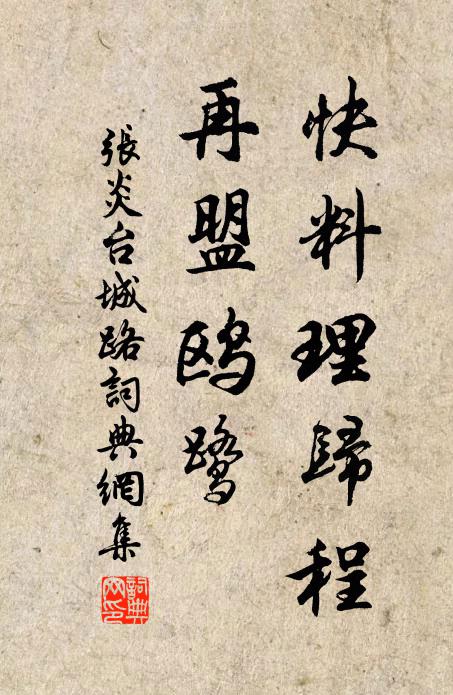 快料理歸程
再盟鷗鷺
張炎台城路詞典網集
詞典網印